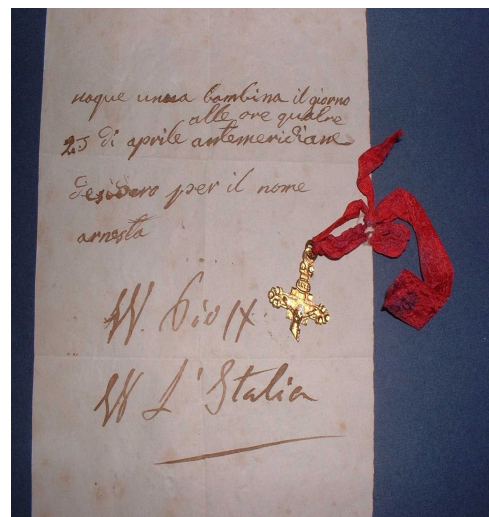 naque unna bambina il giorno
alle ore quatre
25 di aprile antemeridiane
desidero per il nome
arnesta
W. Pio IX.
W L'Italia